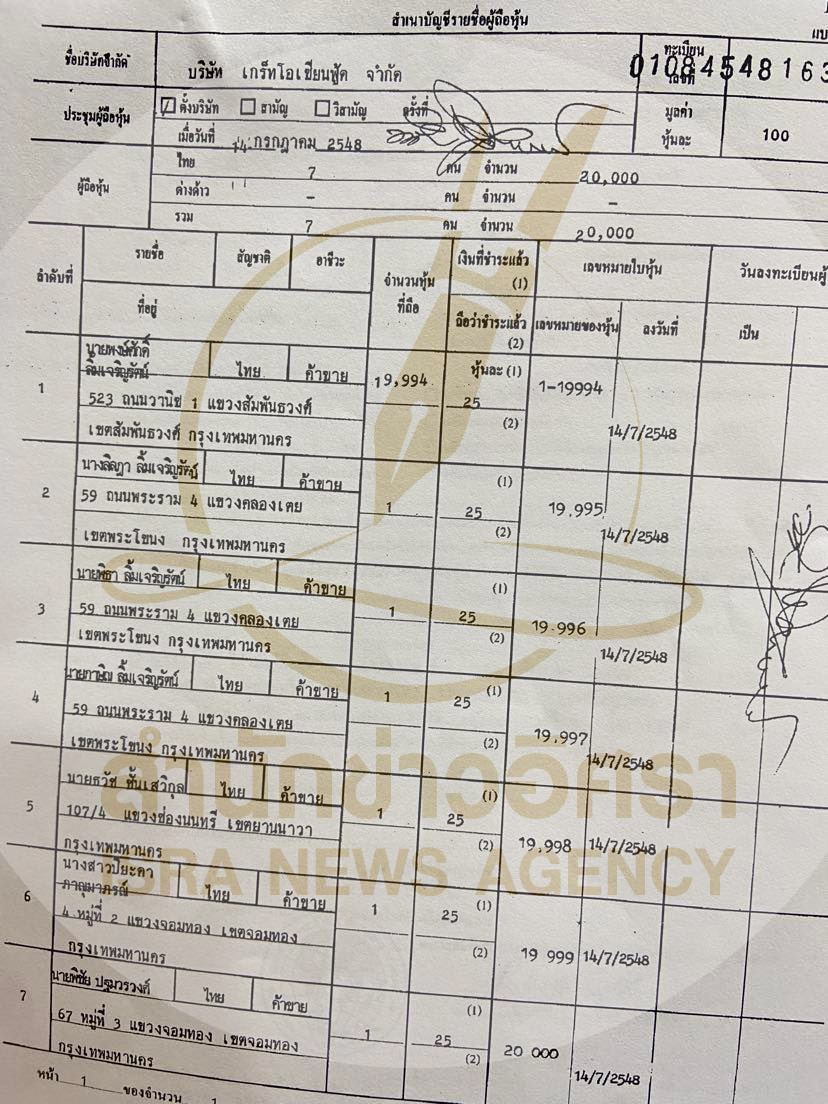 สำเนาบัญชีรายชื่อผู้ถือหุ้น
แบบ
ชื่อบริษัทจำกัด บริษัท เกร็ทโอเชียนฟู้ด จำกัด ทะเบียนเลขที่ 0108454816
ประชุมผู้ถือหุ้น ตั้งบริษัท สามัญ วิสามัญ ครั้งที่ มูลค่าหุ้นละ 100
เมื่อวันที่ 14 กรกฎาคม 2548
ผู้ถือหุ้น ไทย 7 คน จำนวน 20,000
ต่างด้าว - คน จำนวน -
รวม 7 คน จำนวน 20,000
ลำดับที่ รายชื่อ สัญชาติ อาชีวะ จำนวนหุ้นที่ถือ เงินที่ชำระแล้ว (1) เลขหมายใบหุ้น วันลงทะเบียนผู้
ที่อยู่ ถือว่าชำระแล้ว (2) เลขหมายของหุ้น ลงวันที่ เป็น
นายพงษ์ศักดิ์
1 ลิ้มเจริญรัตน์ ไทย ค้าขาย 19,994 หุ้นละ (1) 1-19994
523 ถนนวานิช 1 แขวงสัมพันธวงศ์ 25
เขตสัมพันธวงศ์ กรุงเทพมหานคร (2) 14/7/2548
2 นางลิลฎา ลิ้มเจริญรัตน์ ไทย ค้าขาย (1)
59 ถนนพระราม 4 แขวงคลองเตย 1 25 19,995
เขตพระโขนง กรุงเทพมหานคร (2) 14/7/2548
3 นายพิธา ลิ้มเจริญรัตน์ ไทย ค้าขาย (1)
59 ถนนพระราม 4 แขวงคลองเตย 1 25 19.996
เขตพระโขนง กรุงเทพมหานคร (2) 14/7/2548
4 นายภาษิณ ลิ้มเจริญรัตน์ ไทย ค้าขาย 1 25 (1)
59 ถนนพระราม 4 แขวงคลองเตย 19,997
เขตพระโขนง กรุงเทพมหานคร (2) 14/7/2548
5 นายธวัช ชั้นเสวิกุล ไทย ค้าขาย 1 25 (1)
107/4 แขวงช่องนนทรี เขตยานนาวา
กรุงเทพมหานคร (2) 19,998 14/7/2548
นางสาวปิยะดา
6 ภาญุมาภรณ์ ไทย ค้าขาย 1 25 (1)
4 หมู่ที่ 2 แขวงจอมทอง เขตจอมทอง
กรุงเทพมหานคร (2) 19 999 14/7/2548
7 นายพิชัย ปฐมวรวงศ์ ไทย ค้าขาย (1)
67 หมู่ที่ 3 แขวงจอมทอง เขตจอมทอง 1 25
กรุงเทพมหานคร (2) 20 000 14/7/2548
หน้า 1 ของจำนวน 1
สำนักข่าวอิศรา
ISRA NEWS AGENCY